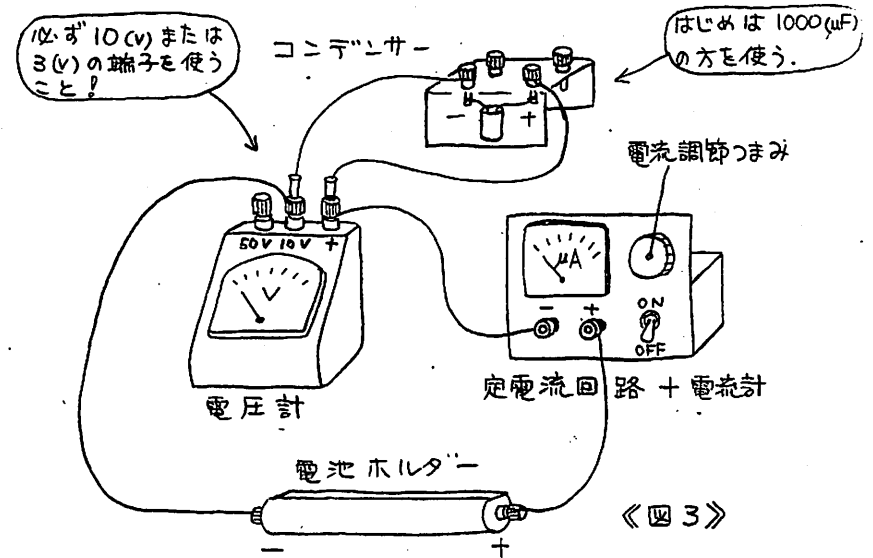 必ず10(V)または
3(V)の端子を使う
こと!
コンデンサー
はじめは1000(μF)
の方を使う.
− +
電流調節つまみ
50V 10V +
V
μA
− +
ON
OFF
電圧計
定電流回路+電流計
電池ホルダー
− +
《図3》